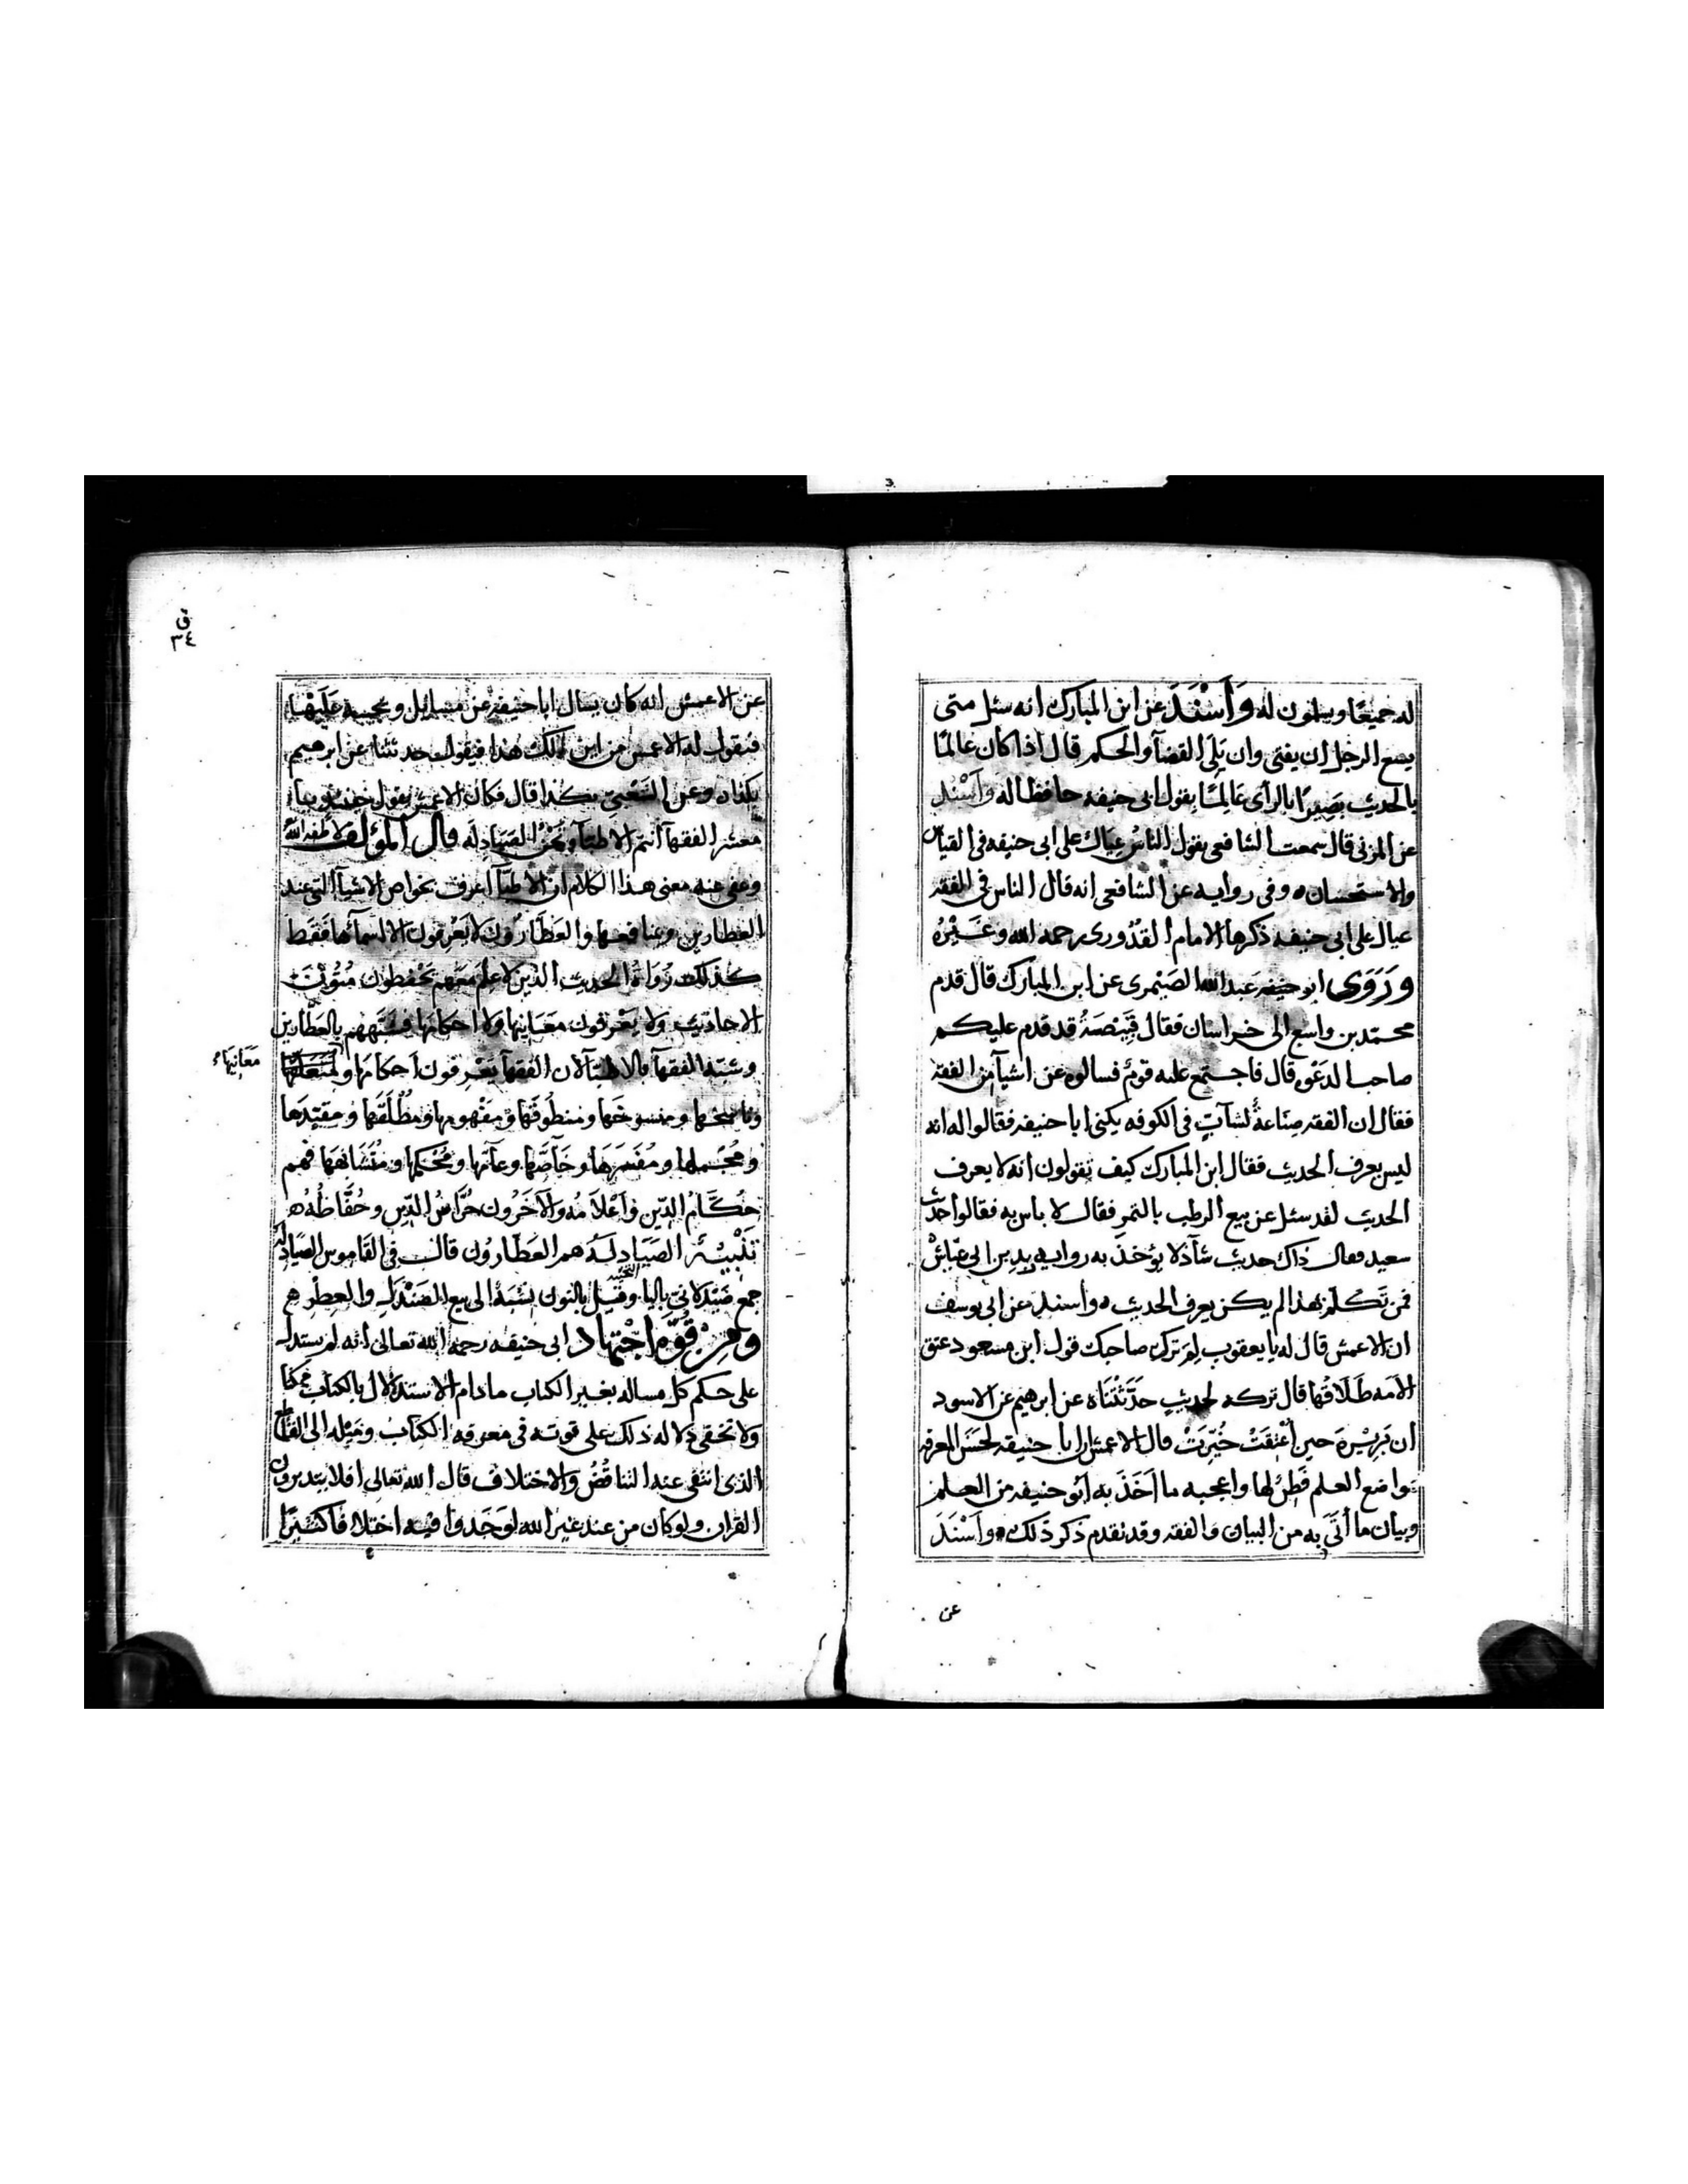 له جميعا ويسلمون له وَأَسْنَدَ عن ابن المبارك انه سئل متى
يسع الرجل ان يفتى وان يلى القضآ والحكم قال اذا كان عالمًا
بالحديث بَصِيرًا بالرأى عَالِمًا بقول ابى حنيفه حافظا له وَأَسْنَد
عن المزنى قال سمعت الشافعى يقول الناسُ عِيَاك على ابى حنيفه فى القياس
والاستحسان ه وفى روايه عن الشافعى انه قال الناس فى الفقه
عيال على ابى حنيفه ذكرها الامام القدُورى رحمه الله وغَيْرُه
وَرَوَى ابو حنيفه عبد الله الصَيْمرى عن ابن المبارك قال قدم
محمّد بن واسع الى خراسان فقال قَبِيْصَةُ قد قدم عليكم
صاحب الدعوه قال فاجتمع عليه قومٌ فسالوه عن اشيآ من الفقه
فقال ان الفقه صِنَاعةٌ لشآبّ فى الكوفه يكنى ابا حنيفه فقالوا له انه
ليس يعرف الحديث فقال ابن المبارك كيف تقولون انه لا يعرف
الحديث لقد سئل عن بيع الرطب بالتمر فقال لا باس به فقالوا حديث
سعيد فقال ذاك حديث شآذ لا يؤخذ به روايه زيد بن ابى عيّاش
فمن تَكَلّم بهذا لم يكن يعرف الحديث ه وأسندَ عن ابى يوسف
ان الاعمش قال له يا يعقوب لِمَ ترك صاحبك قول ابن مسعود عتق
الأمه طَلَاقُها قال تركه لحديثٍ حَدَّثْتَناه عن ابرهيم عن الاسود
ان بَرِيْرةَ حين أعْتِقَتْ خُيِّرَتْ قال الاعمش ان ابا حنيفه لحَسَن المعرفه
بمواضع العلم فَطِنٌ لها واعجبه ما اَخَذَ به أبو حنيفه من العلم
وبيان ما أَتَى به من البيان والفقه وقد تقدم ذكر ذلك ه وَأسْنَدَ
عن
ق
٣٤
عن الاعمش انه كان يسال ابا حنيفه عن مسائل ويجيبه عَلَيْها
فيقول له الاعمش من اين لك هذا فيقول حدثتنا عن ابرهيم
بكذا ه وعن الشَعْبِىّ بكذا قال فكان الاعمش يقول عند
معشر الفقهآ أنتم الاطبآ ونَحْنُ الصَيَادِلَه قال المؤلف لاطفه الله
وعفى عنه معنى هذا الكلام ان الاطبآ أعرف بخواص الاشيآ التى عند
العطارين ومنافعها والعَطّارُون لا يَعْرفون الا اسمآءها فَقَط
كذلك رُوَاةُ الحديث الذين لا علم مَعَهم يحْفظون مُتُونَ
الاحاديث ولا يَعْرفون مَعَانيها ولا احكامها فشبّههم بالعَطّارين
وشبّه الفقهآ بالاطبآ لان الفقهآ يَعْرفون أحكامها و
مَعَانِيَهَا
وناسخها ومنسوخَها ومنطُوقَها ومفْهومها ومُطْلَقَها ومقيّدَها
ومُجْملها ومُفَسَّرَها وخَاصَّها وعآمّها ومُحْكمها ومُتَشَابِهَهَا فهم
حُكَّامُ الدِّين وَأَعْلَامُه وَالآخَرُون حُرَّاسُ الدِّين وحُفَّاظُه ه
تَنْبِيْهٌ الصَيَادِلَه هم العَطّارُون قال فى القَاموس الصَيَادِلَه
جمع صَيْدَلانىّ باليا وقيل بالنون نِسْبَةٌ الى بيع الصَنْدَل والعِطْر ه
ومِنْ قُوَّةِ اجْتِهَاد ابى حنيفه رحمه الله تعالى انه لم يستدل
على حكم كل مساله بغير الكتاب مادام الاستدلال بالكتاب ممكنا
ولا تخفى دلاله ذلك على قوته فى معرفه الكتاب ومَيْله الى
الذى انتفى عنه التناقُضُ والاختلاف قال الله تعالى افلا يتدبرون
القران ولو كان من عند غير الله لَوَجَدوا فيه اختلافا كثيرًا